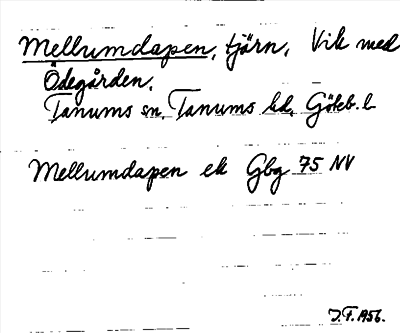 Mellumdapen, tjärn, Vik med
Ödegården.
Tanums sn, Tanums hd, Göteb. l
Mellumdapen ek Gbg 75 NV
J.F. 1956.